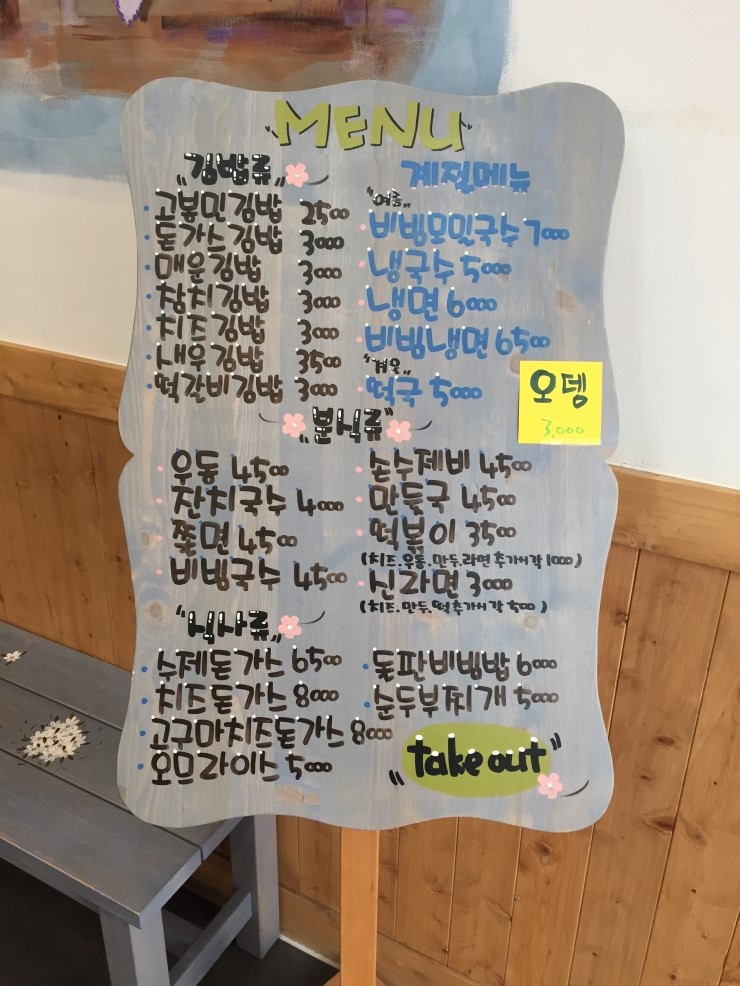 MENU
김밥류
고봉민김밥 2500
돈가스김밥 3000
매운김밥 3000
참치김밥 3000
치즈김밥 3000
새우김밥 3500
떡갈비김밥 3000
계절메뉴
"여름"
비빔모밀국수 7000
냉국수 5000
냉면 6000
비빔냉면 6500
"겨울"
떡국 5000
오뎅
3,000
"분식류"
우동 4500
잔치국수 4000
쫄면 4500
비빔국수 4500
손수제비 4500
만둣국 4500
떡볶이 3500
(치즈.우동.만두.라면 추가시 각 1000)
신라면 3000
(치즈.만두.떡 추가시 각 500)
"식사류"
수제돈가스 6500
치즈돈가스 8000
고구마치즈돈가스 8000
오므라이스 5000
돌판비빔밥 6000
순두부찌개 5000
"take out"